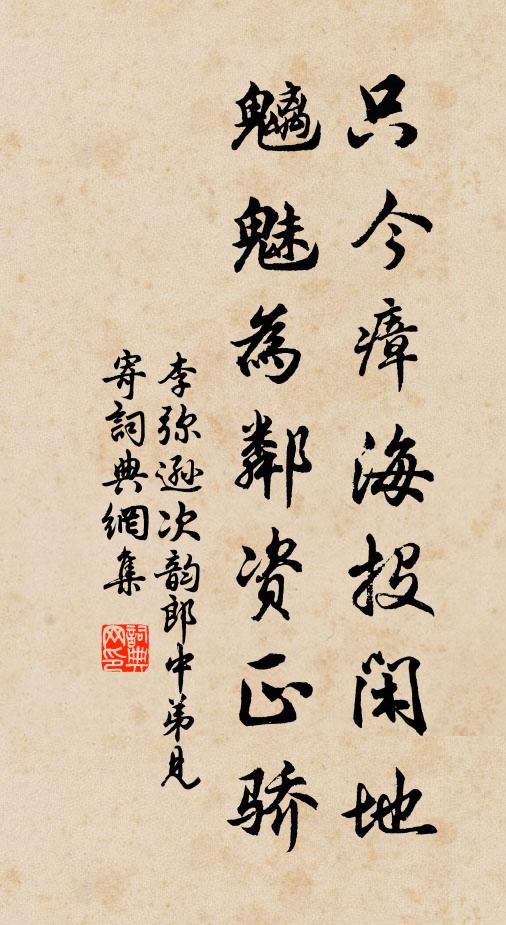 只今瘴海投闲地
魑魅為鄰资正骄
李弥遜次韵郎中弟見
寄詞典網集
詞典网印